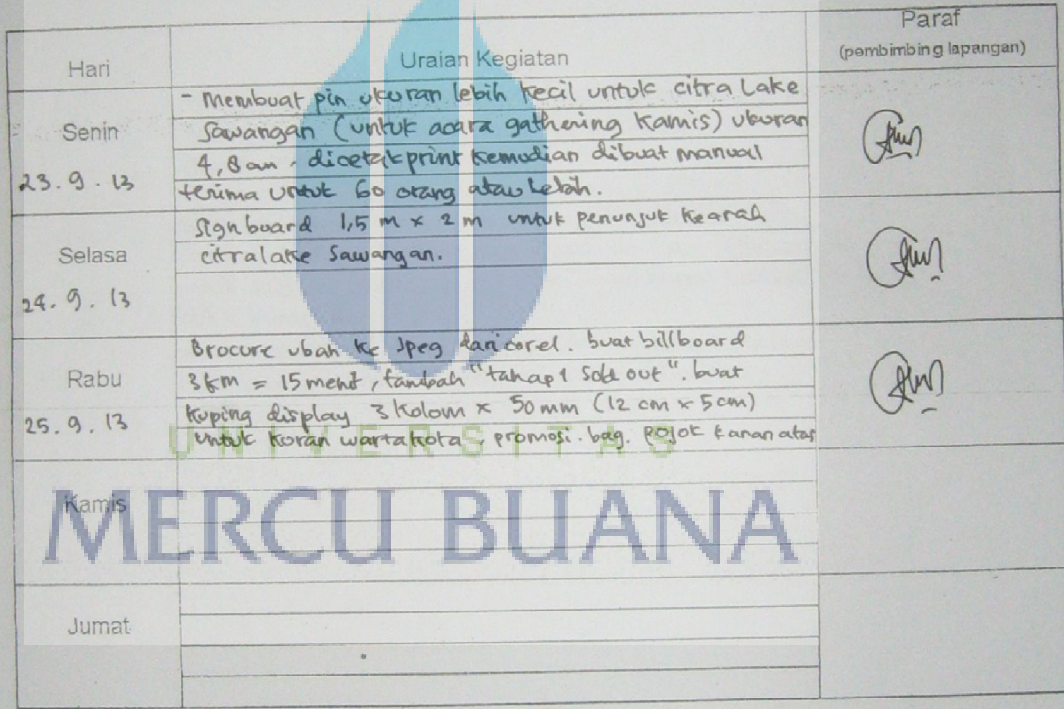 Hari
Uraian Kegiatan
Paraf
(pembimbing lapangan)
Senin
23.9.13
- Membuat pin ukuran lebih kecil untuk citra Lake
Sawangan (untuk acara gathering Kamis) ukuran
4,8 cm, dicetak print kemudian dibuat manual
terima untuk 60 orang atau lebih.
Selasa
24.9.13
Signboard 1,5 m x 2 m untuk penunjuk kearah
citralake Sawangan.
Rabu
25.9.13
Brocure ubah ke Jpeg dari corel. buat billboard
3 km = 15 menit, tambah "tahap 1 Sold out". buat
kuping display 3 kolom x 50 mm (12 cm x 5 cm)
untuk koran wartakota, promosi. bag. pojok kanan atas
Kamis
Jumat
UNIVERSITAS
MERCU BUANA